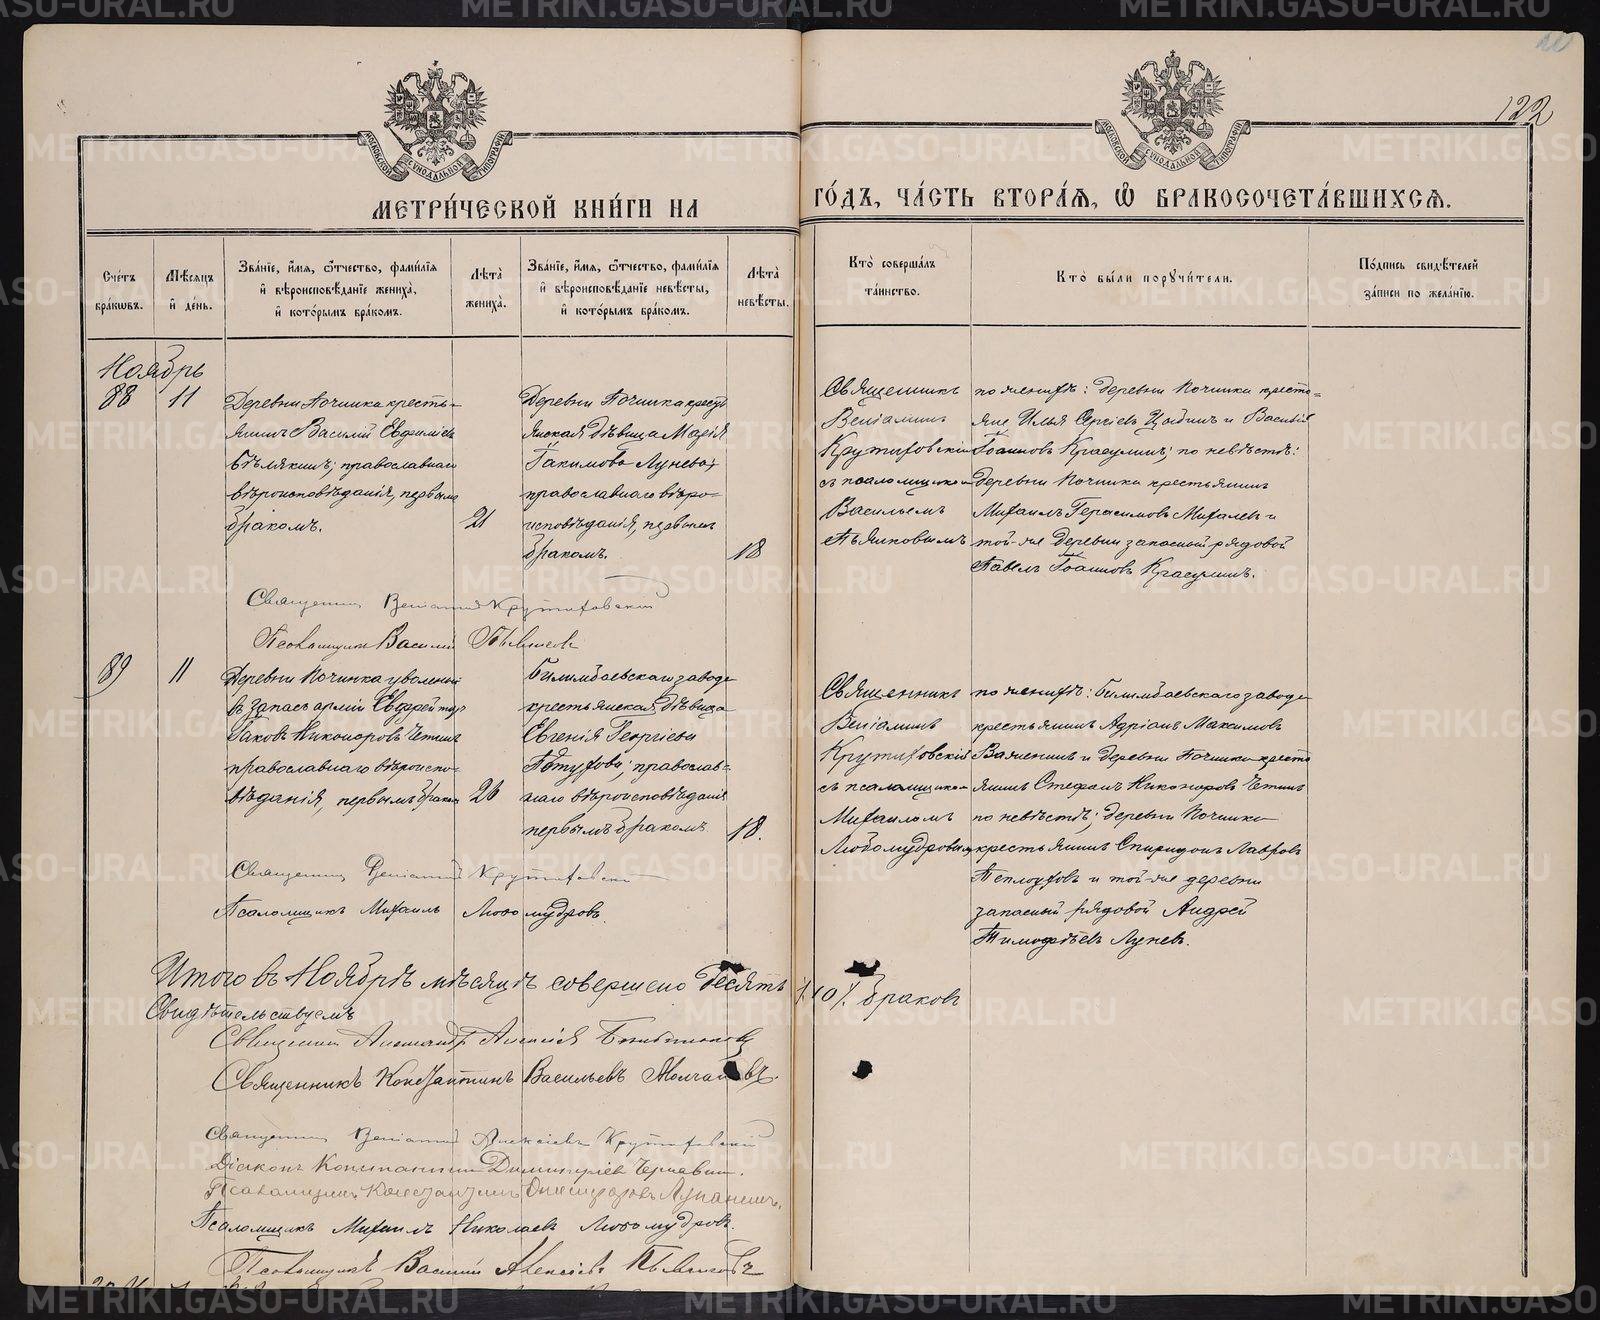 122
МЕТРИ́ЧЕСКОЙ КНИ́ГИ НА
ГО́ДЪ, ЧА́СТЬ ВТОРА́Ѧ, Ѡ҆ БРАКОСОЧЕТА́ВШИХСѦ.
Сче́тъ бра́кѡвъ.
Мѣ́сяцъ и҆ де́нь.
Зва́нїе, и҆́мѧ, ѻ҆́тчество, фами́лїѧ и҆ вѣроисповѣ́данїе жениха̀, и҆ кото́рымъ бра́комъ.
Лѣ́та жениха̀.
Зва́нїе, и҆́мѧ, ѻ҆́тчество, фами́лїѧ и҆ вѣроисповѣ́данїе невѣ́сты, и҆ кото́рымъ бра́комъ.
Лѣ́та невѣ́сты.
Кто̀ соверша́лъ та́инство.
Кто̀ бы́ли порꙋчи́тели.
По́дпись свидѣ́телей за́писи по жела́нїю.
Ноябрь
88
11
Деревни Починка кресть-
янинъ Василій Евфиміевъ
Бѣлякинъ; православнаго
вѣроисповѣданія, первымъ
бракомъ.
21
Деревни Починка крестьян
янская дѣвица Марія
Іакимова Лунева;
православнаго вѣро-
исповѣданія, первымъ
бракомъ.
18
Священникъ
Веніаминъ
Крутиховскій
съ псаломщикомъ
Васильемъ
Пьянковымъ
по женихѣ: деревни Починка кресть-
яне Илья Сергіевъ и Василій
Іоанновъ Красулинъ; по невѣстѣ:
деревни Починка крестьянинъ
Михаилъ Герасимовъ Михалевъ и
той-же деревни запасный рядовой
Павелъ Іоанновъ Красулинъ.
Священникъ Веніаминъ Крутиховскій
Псаломщикъ Василій Пьянковъ
89
11
Деревни Починка уволенный
въ запасъ арміи Ефрейторъ
Іаковъ Никоноровъ Четинъ
православнаго вѣроиспо-
вѣданія, первымъ бракомъ
26
Билимбаевскаго завода
крестьянская дѣвица
Евгенія Георгіева
Пѣтухова; православ-
наго вѣроисповѣданія
первымъ бракомъ.
18.
Священникъ
Веніаминъ
Крутиховскій
съ псаломщикомъ
Михаиломъ
Любомудровымъ
по женихѣ: Билимбаевскаго завода
крестьянинъ Адріанъ Максимовъ
Важенинъ и деревни Починка кресть
янинъ Стефанъ Никоноровъ Четинъ
по невѣстѣ; деревни Починка
крестьянинъ Спиридонъ Лавровъ
Теплоуховъ и той-же деревни
запасный рядовой Андрей
Тимофѣевъ Луневъ.
Священникъ Веніаминъ Крутиховскій
Псаломщикъ Михаилъ Любомудровъ.
Итого въ Ноябрѣ мѣсяцѣ совершено Десять /10/. браковъ
Свидѣтельствуемъ
Священникъ Александръ Алексіевъ
Священникъ Константинъ Васильевъ Молчановъ.
Священникъ Веніаминъ Алексіевъ Крутиховскій
Діаконъ Константинъ Димитріевъ Чернавинъ.
Псаломщикъ Константинъ
Псаломщикъ Михаилъ Николаевъ Любомудровъ.
Псаломщикъ Василій Алексіевъ Пьянковъ
METRIKI.GASO-URAL.RU